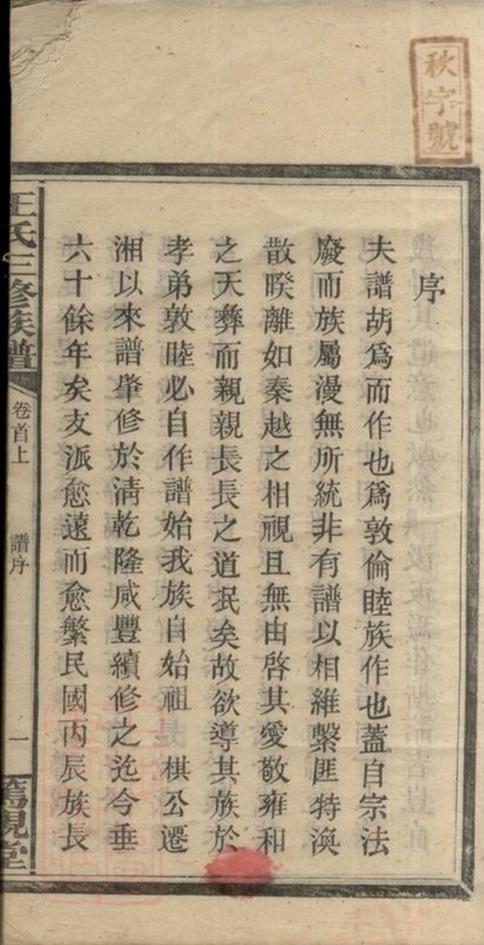 秋字號
序
夫譜胡爲而作也爲敦倫睦族作也蓋自宗法
廢而族屬漫無所統非有譜以相維繫匪特渙
散睽離如秦越之相視且無由啓其愛敬雍和
之天彝而親親長長之道泯矣故欲導其族於
孝弟敦睦必自作譜始我族自始祖 棋公遷
湘以來譜肇修於淸乾隆咸豐續修之迄今垂
六十餘年矣支派愈遠而愈繁民國丙辰族長
王氏三修族譜 卷首上 譜序 一 篤親堂